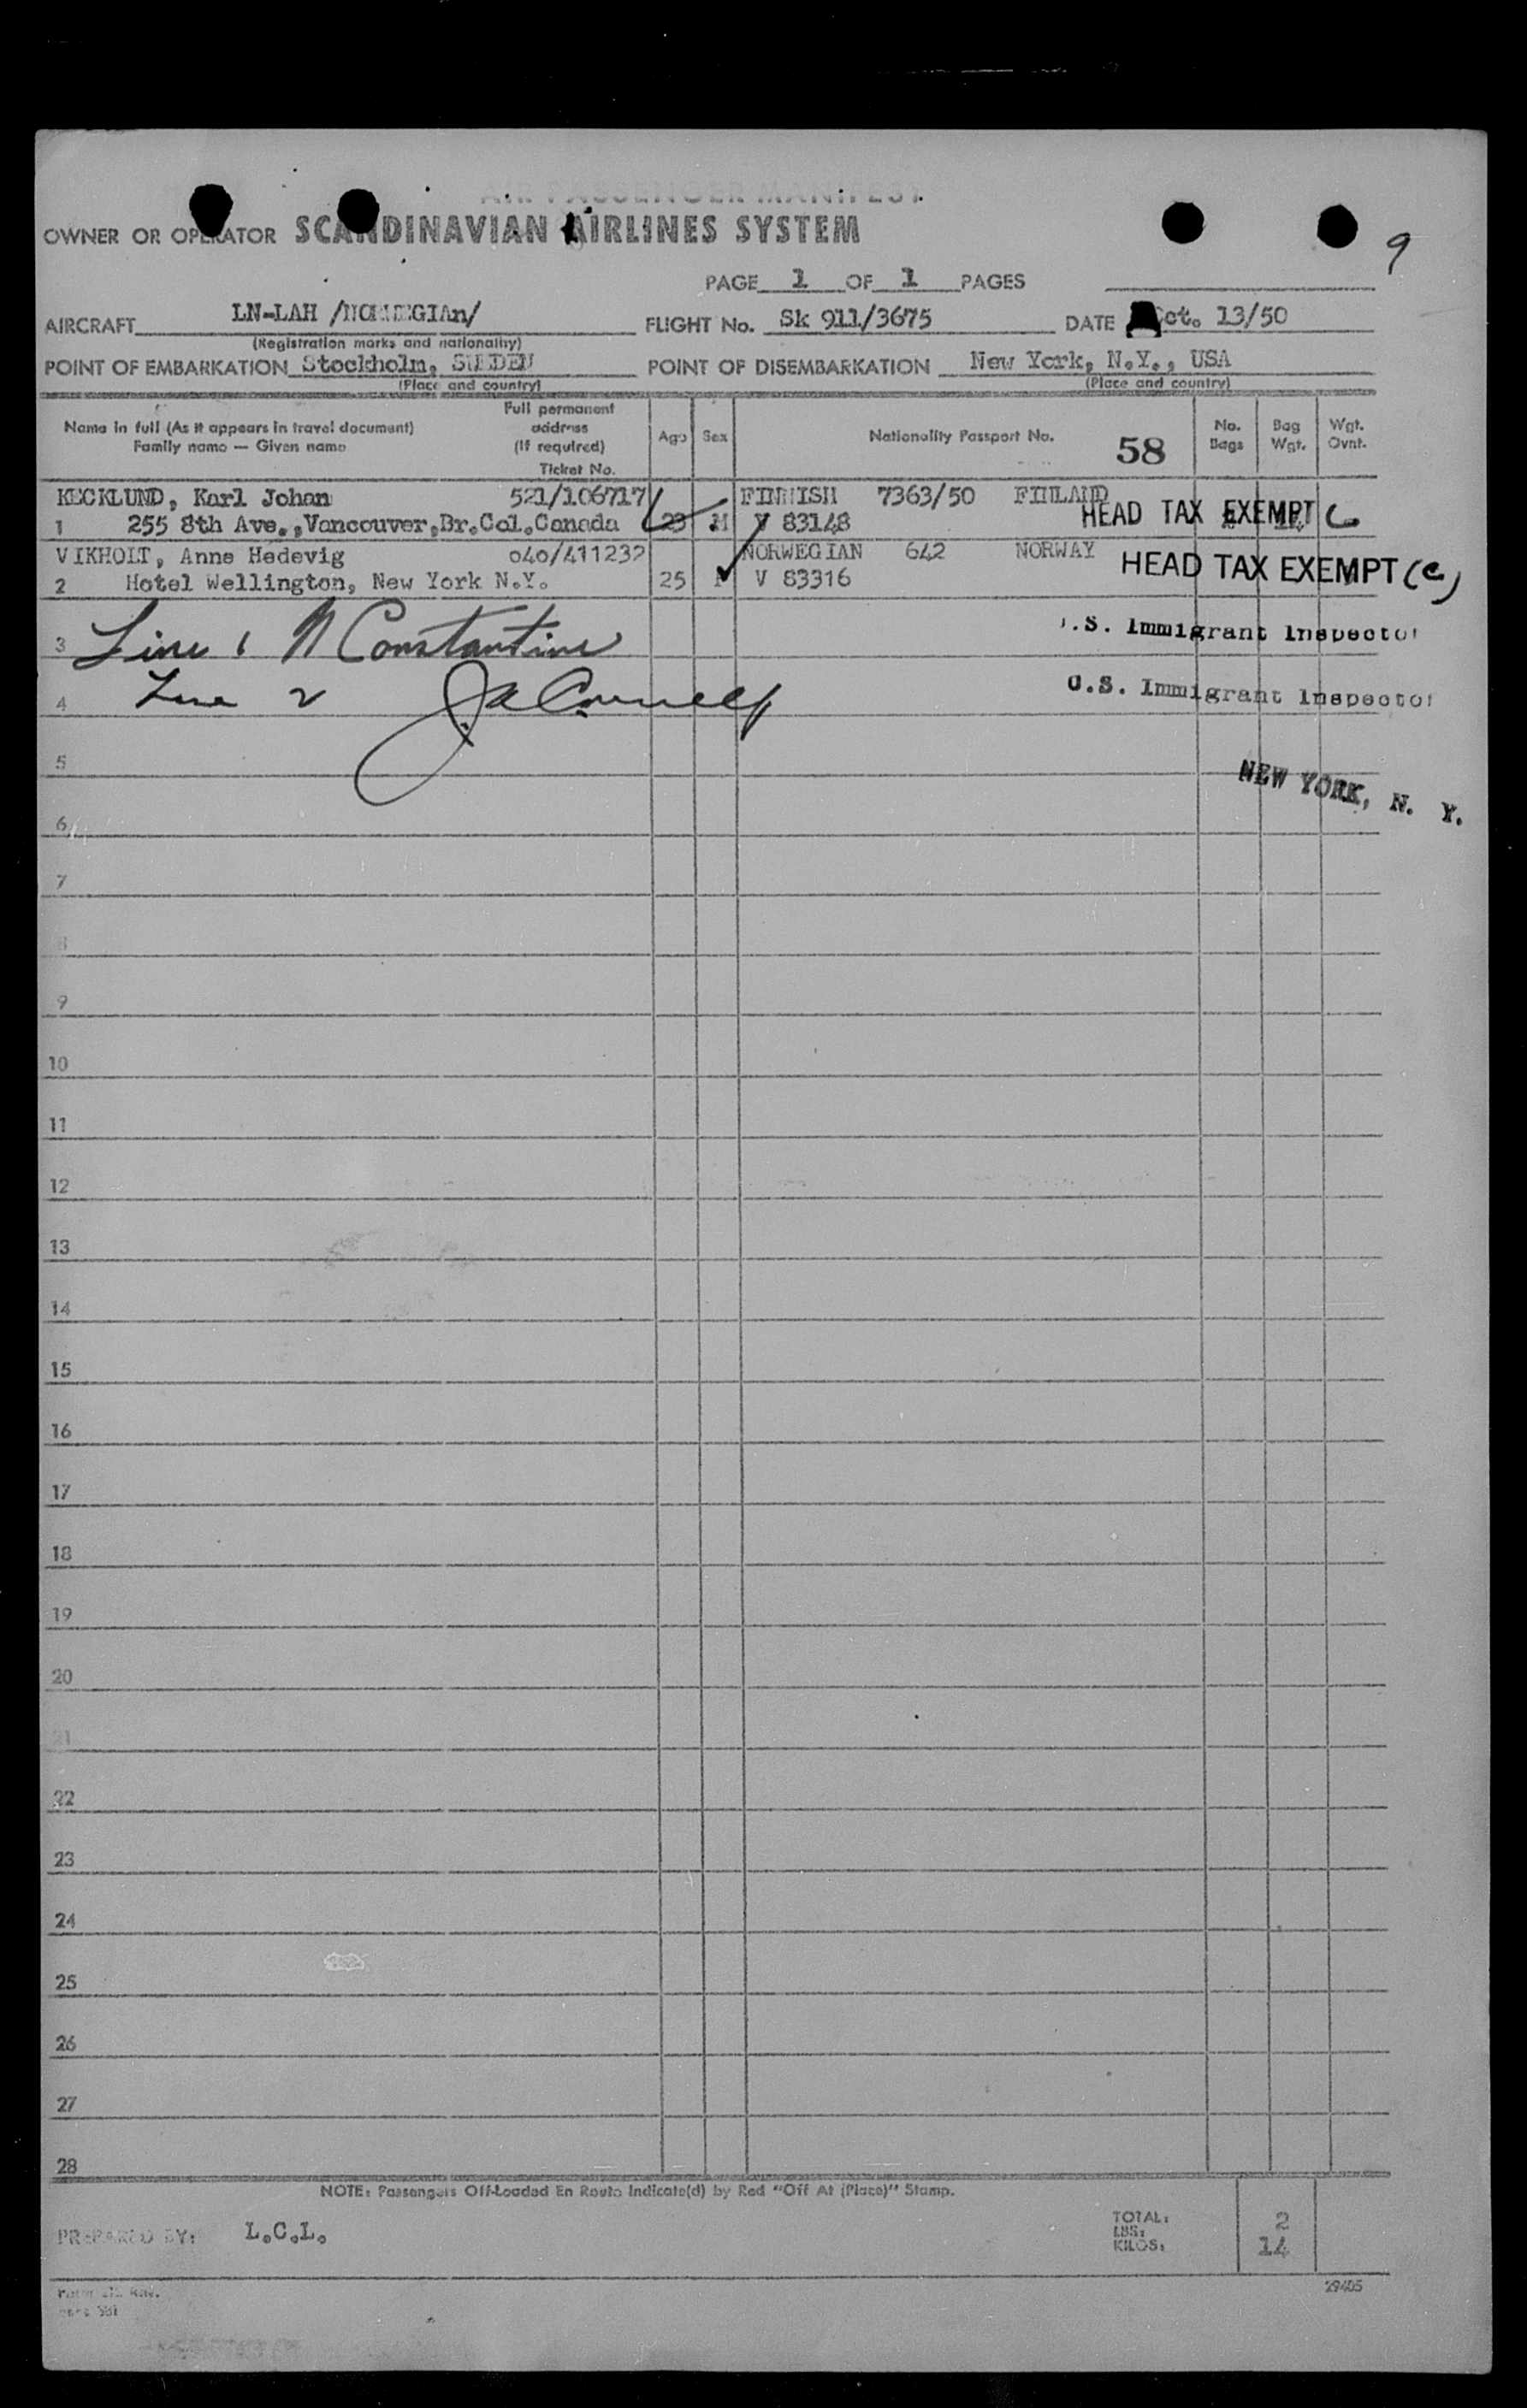 AIR PASSENGER MANIFEST
OWNER OR OPERATOR SCANDINAVIAN AIRLINES SYSTEM
9
PAGE 1 OF 1 PAGES
AIRCRAFT LN-LAH /NORWEGIAn/ FLIGHT No. Sk 911/3675 DATE Oct. 13/50
(Registration marks and nationality)
POINT OF EMBARKATION Stockholm, SWEDEN POINT OF DISEMBARKATION New York, N.Y., USA
(Place and country) (Place and country)
Name in full (As it appears in travel document)
Family name — Given name
Full permanent
address
(If required)
Ticket No.
Age Sex Nationality Passport No. 58
No. Bags
Bag Wgt.
Wgt. Ovnt.
KECKLUND, Karl Johan 521/106717 FINNISH 7363/50 FINLAND
1 255 8th Ave.,Vancouver,Br.Col.Canada 23 M V 83148 HEAD TAX EXEMPT C
VIKHOLT, Anne Hedevig 040/411232 NORWEGIAN 642 NORWAY
2 Hotel Wellington, New York N.Y. 25 V 83316 HEAD TAX EXEMPT (c)
3 Line 1 N Constantine .S. Immigrant Inspector
4 Line 2 U.S. Immigrant Inspector
5
NEW YORK, N. Y.
6
7
8
9
10
11
12
13
14
15
16
17
18
19
20
21
22
23
24
25
26
27
28
NOTE: Passengers Off-Loaded En Route Indicate(d) by Red "Off At (Place)" Stamp.
PREPARED BY: L.C.L.
TOTAL: 2
LBS:
KILOS: 14
29405